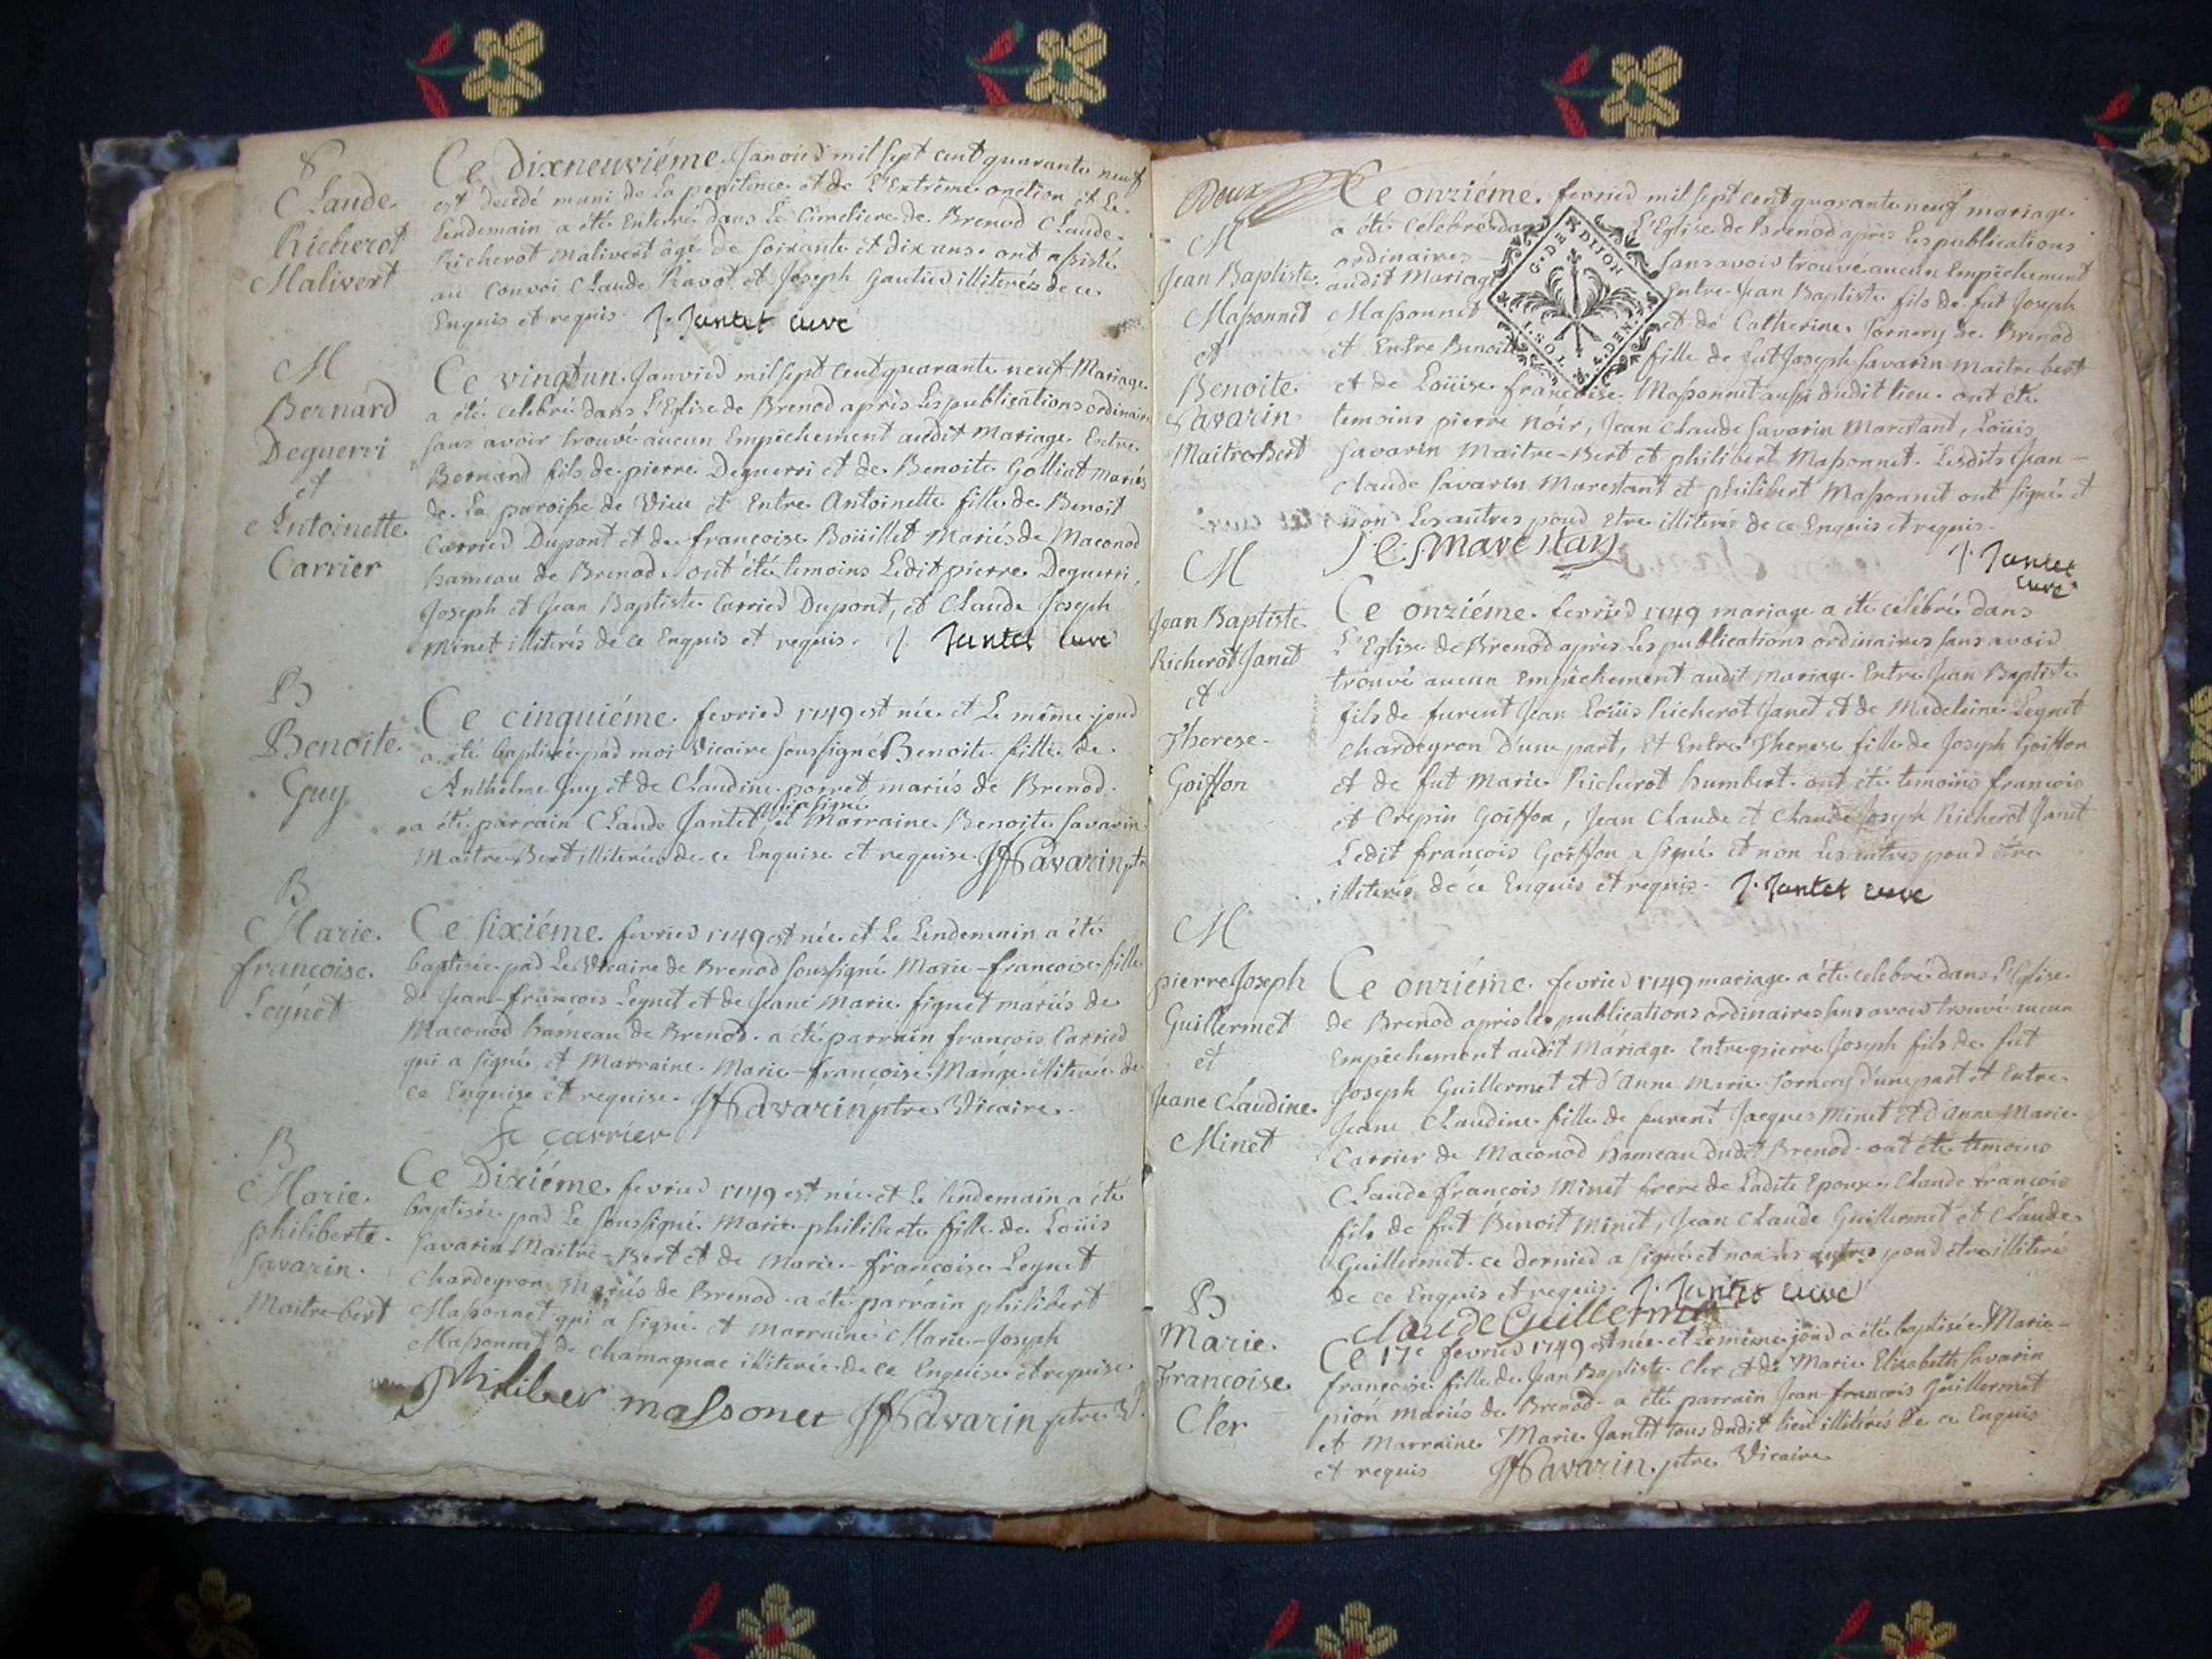 S
Claude
Richerot
Malivert
Ce dixneuviéme Janvier mil sept cent quarante neuf
est decedé muni de la penitence et de l'Extrême onction et le
lendemain a été Enterré dans le Cimetiere de Brenod Claude
Richerot Malivert âgé de soixante et dix ans. ont assisté
au convoi Claude Ravot et Joseph Gautier illiterés de ce
Enquis et requis. J. Jantet curé
M
Bernard
Deguerri
et
Antoinette
Carrier
Ce vingtun Janvier mil sept cent quarante neuf Mariage
a été celebré dans l'Eglise de Brenod apres les publications ordinaires
sans avoir trouvé aucun Empêchement audit Mariage Entre
Bernard fils de pierre Deguerri et de Benoite Golliat mariés
de la paroisse de Vieu et Entre Antoinette fille de Benoit
Carrier Dupont et de françoise Boüillet Mariés de Maconod
hameau de Brenod. ont été temoins Ledit pierre Deguerri,
Joseph et Jean Baptiste Carrier Dupont, et Claude Joseph
Minet illiterés de ce Enquis et requis. J. Jantet curé
B
Benoite
Guy
Ce cinquiéme fevrier 1749 est née et Le même jour
a été baptisée par moi Vicaire soussigné Benoite fille de
Anthelme Guy et de Claudine porret mariés de Brenod.
a été parrain Claude Jantet, qui a signé et Marraine Benoite Savarin
Maitre-Bert illiterée de ce Enquise et requise. JfSavarin ptre
B
Marie
françoise
Leynet
Ce sixiéme fevrier 1749 est née et Le Lendemain a été
baptisée par Le Vicaire de Brenod soussigné Marie-françoise fille
de Jean-françois Leynet et de Jeane Marie figuet mariés de
Maconod hameau de Brenod. a été parrain françois Carrier
qui a signé, et Marraine Marie-françoise illiterée de
ce Enquise et requise. JfSavarin ptre Vicaire
f c carrier
B
Marie
philiberte
Savarin
Maitre-bert
Ce Dixiéme fevrier 1749 est née et le lendemain a été
baptisée par Le soussigné Marie-philiberte fille de Loüis
Savarin Maitre-Bert et de Marie-françoise Leynet
Chardeyron Mariés de Brenod. a été parrain philibert
Massonnet qui a signé et marraine Marie-Joseph
Massonnet de Chamagnae illiterée de ce Enquise et requise
Philiber massonet JfSavarin ptre V.
Deux
M
Jean Baptiste
Massonnet
et
Benoite
Savarin
MaitreBert
Ce onziéme fevrier mil sept cent quarante neuf mariage
a été Celebré dans l'Eglise de Brenod apres Les publications
ordinaires sans avoir trouvé aucun Empêchement
audit Mariage Entre Jean Baptiste fils de fut Joseph
Massonnet et de Catherine Tornery de Brenod
et Entre Benoite fille de fut Joseph Savarin Maitre-bert
et de Loüise françoise Massonnet aussi dudit lieu. ont été
temoins pierre Nóir, Jean Claude Savarin Marestant, Loüis
Savarin Maitre-Bert et philibert Massonnet. Lesdits Jean-
Claude Savarin Marestant et philibert Massonnet ont signé et
non Les autres pour Etre illiterés de ce Enquis et requis.
G. DE DIJON
1. SOL. 4. DEN.
J. Jantet
curé
M
Jean Baptiste
Richerot Janet
et
Therese
Goiffon
Ce onziéme fevrier 1749 mariage a été célébré dans
L'Eglise de Brenod apres Les publications ordinaires sans avoir
trouvé aucun Empêchement audit Mariage Entre Jean Baptiste
fils de furent Jean Loüis Richerot Janet et de Madeleine Leynet
chardeyron d'une part, Et Entre Therese fille de Joseph Goiffon
et de fut Marie Richerot humbert. ont été temoins françois
et Crepin Goiffon, Jean Claude et Claude Joseph Richerot Janet
Ledit françois Goiffon a signé et non Les autres pour être
illiterés de ce Enquis et requis. J. Jantet curé
M
pierre Joseph
Guillermet
et
Jeane Claudine
Minet
Ce onziéme fevrier 1749 mariage a été celebré dans L'Eglise
de Brenod apres les publications ordinaires sans avoir trouvé aucun
Empêchement audit Mariage Entre pierre Joseph fils de fut
Joseph Guillermet et d'Anne Marie Tornery d'une part et Entre
Jeane Claudine fille de furent Jacques Minet et d'Anne Marie
Carrier de Maconod hameau dudit Brenod. ont été temoins
Claude françois Minet frere de Ladite Epouse, Claude françois
fils de fut Benoit Minet, Jean Claude Guillermet et Claude
Guillermet. ce dernier a signé et non Les autres pour etre illiteré
de ce Enquis et requis. J. Jantet curé
Claude Guillermet
B
Marie
Françoise
Cler
Ce 17e fevrier 1749 est née et Le même jour a été baptisée Marie-
françoise fille de Jean Baptiste Cler et de Marie Elisabeth Savarin
pion mariés de Brenod. a été parrain Jean-françois Guillermet
et Marraine Marie Jantet tous dudit lieu illiterés de ce Enquis
et requis JfSavarin ptre Vicaire